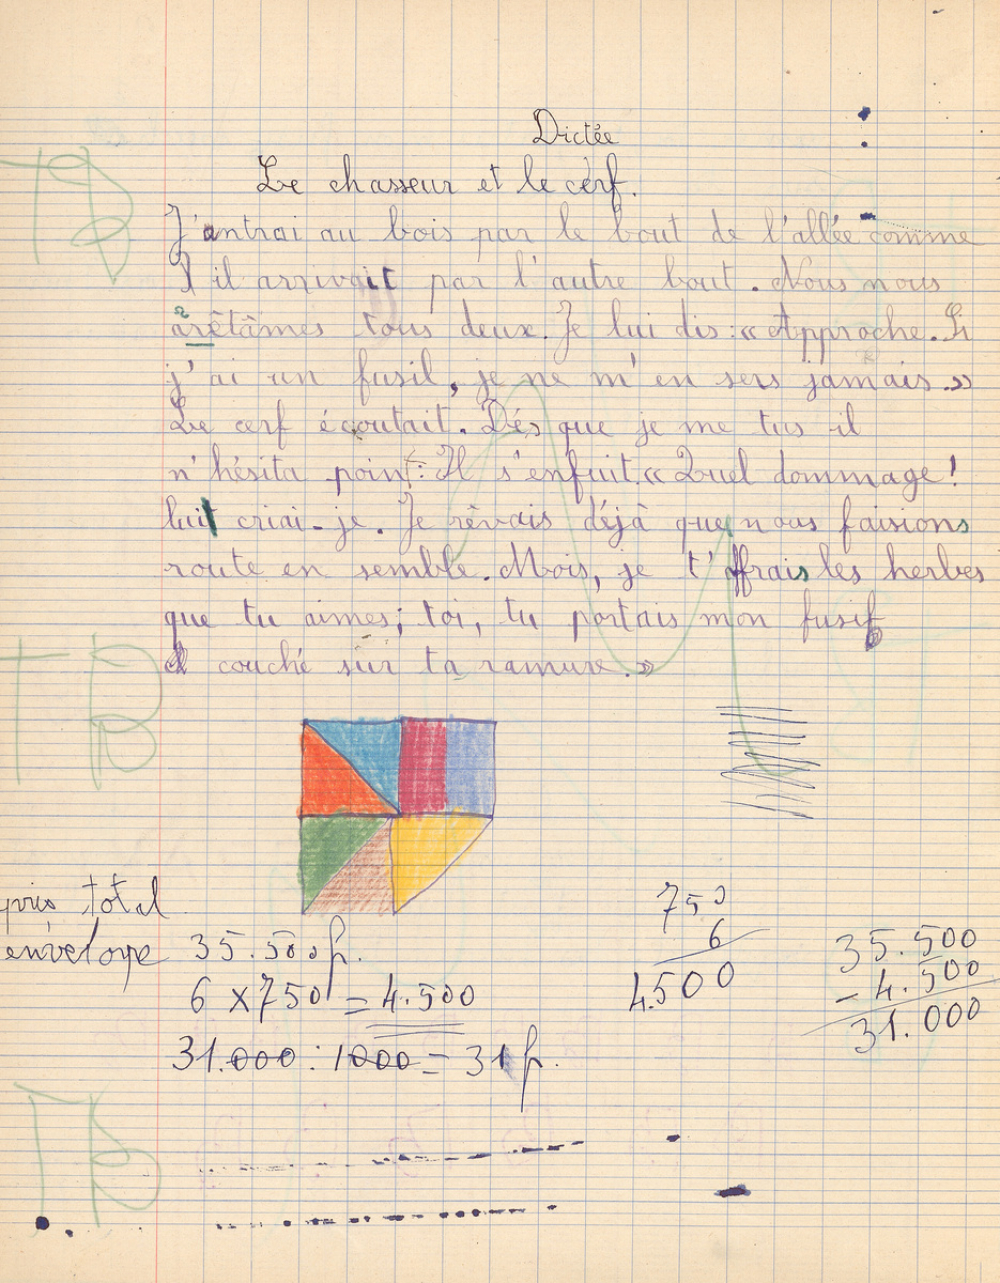 Dictée
Le chasseur et le cerf.
J'antrai au bois par le bout de l'allée comme
il arrivait par l'autre bout. Nous nous
arêtâmes tous deux. Je lui dis : « Approche. Si
j'ai un fusil, je ne m'en sers jamais. »
Le cerf écoutait. Dés que je me tus il
n'hésita point : Il s'enfuit. « Quel dommage !
lui criai-je. Je rêvais déjà que nous faisions
route en semble. Mois, je t'offrais les herbes
que tu aimes ; toi, tu portais mon fusil
couché sur ta ramure. »
TB
TB
TB
prix total
envelope 35.500 f.
6 x 750 = 4.500
31.000 : 1000 = 31 f.
750
6
4.500
35.500
- 4.500
31.000